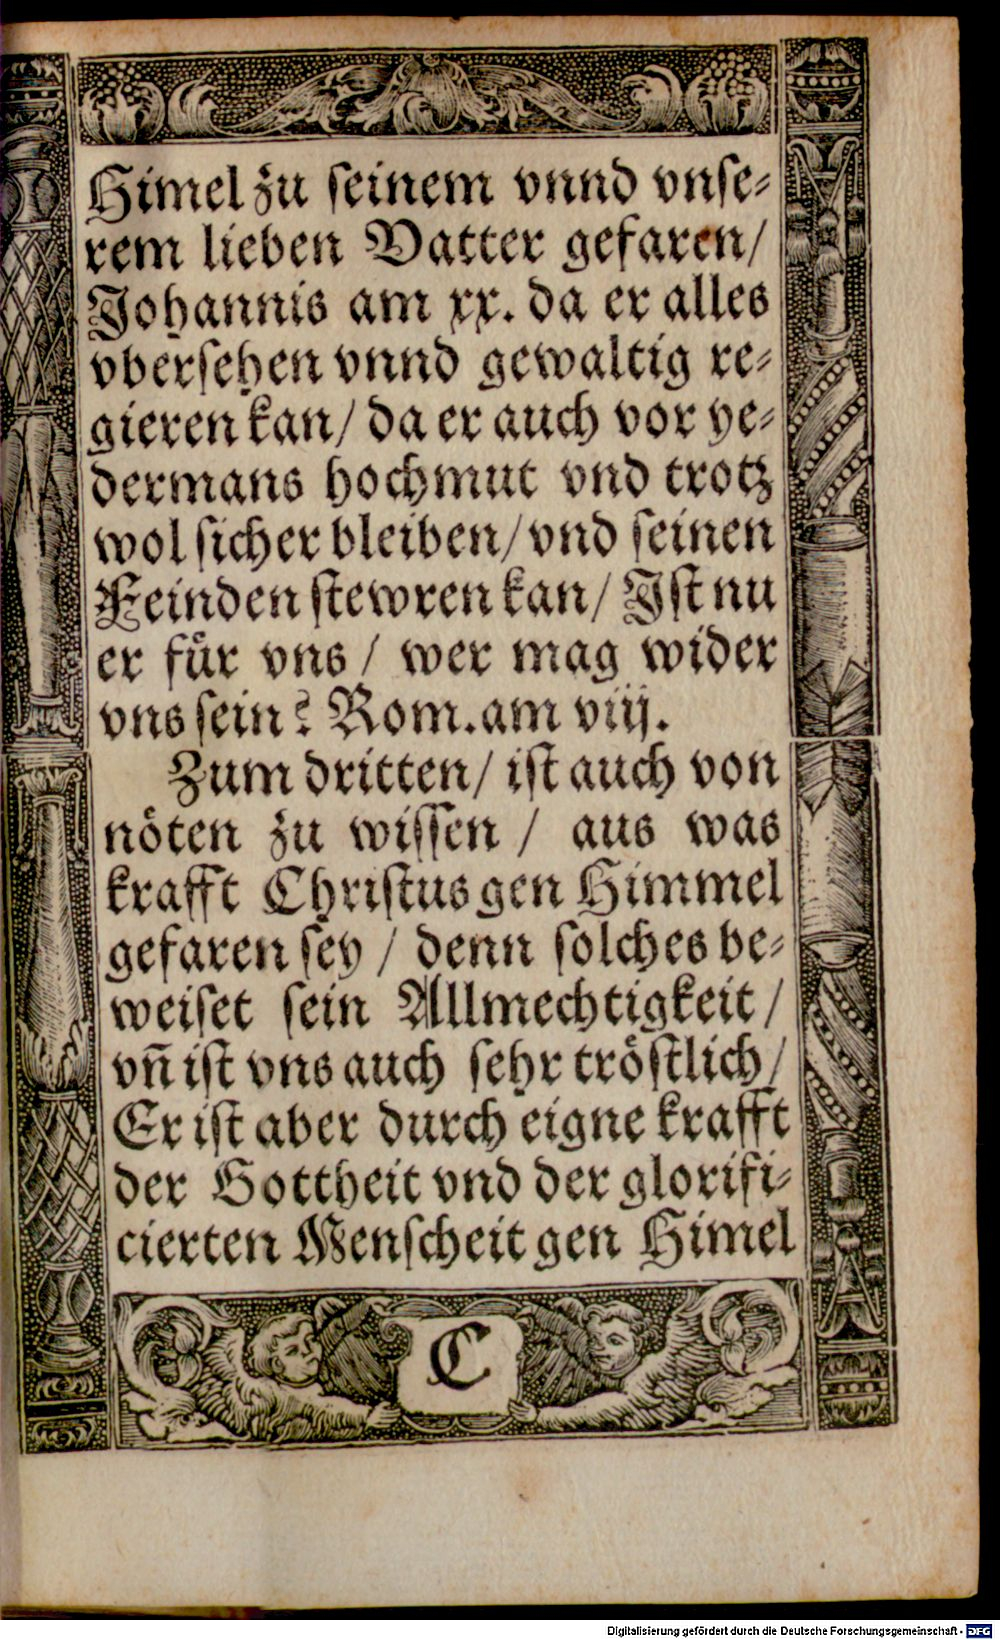 Himel zu seinem vnnd vnse⸗
rem lieben Vatter gefaren/
Johannis am xx. da er alles
vbersehen vnnd gewaltig re⸗
gieren kan/ da er auch vor ye⸗
dermans hochmut vnd trotz
wol sicher bleiben/ vnd seinen
Feinden stewren kan/ Ist nu
er für vns / wer mag wider
vns sein? Rom. am viij.
Zum dritten/ ist auch von
nöten zu wissen / aus was
krafft Christus gen Himmel
gefaren sey / denn solches be⸗
weiset sein Allmechtigkeit/
vn̄ ist vns auch sehr tröstlich/
Er ist aber durch eigne krafft
der Gottheit vnd der glorifi⸗
cierten Menscheit gen Himel
C
Digitalisierung gefördert durch die Deutsche Forschungsgemeinschaft - DFG